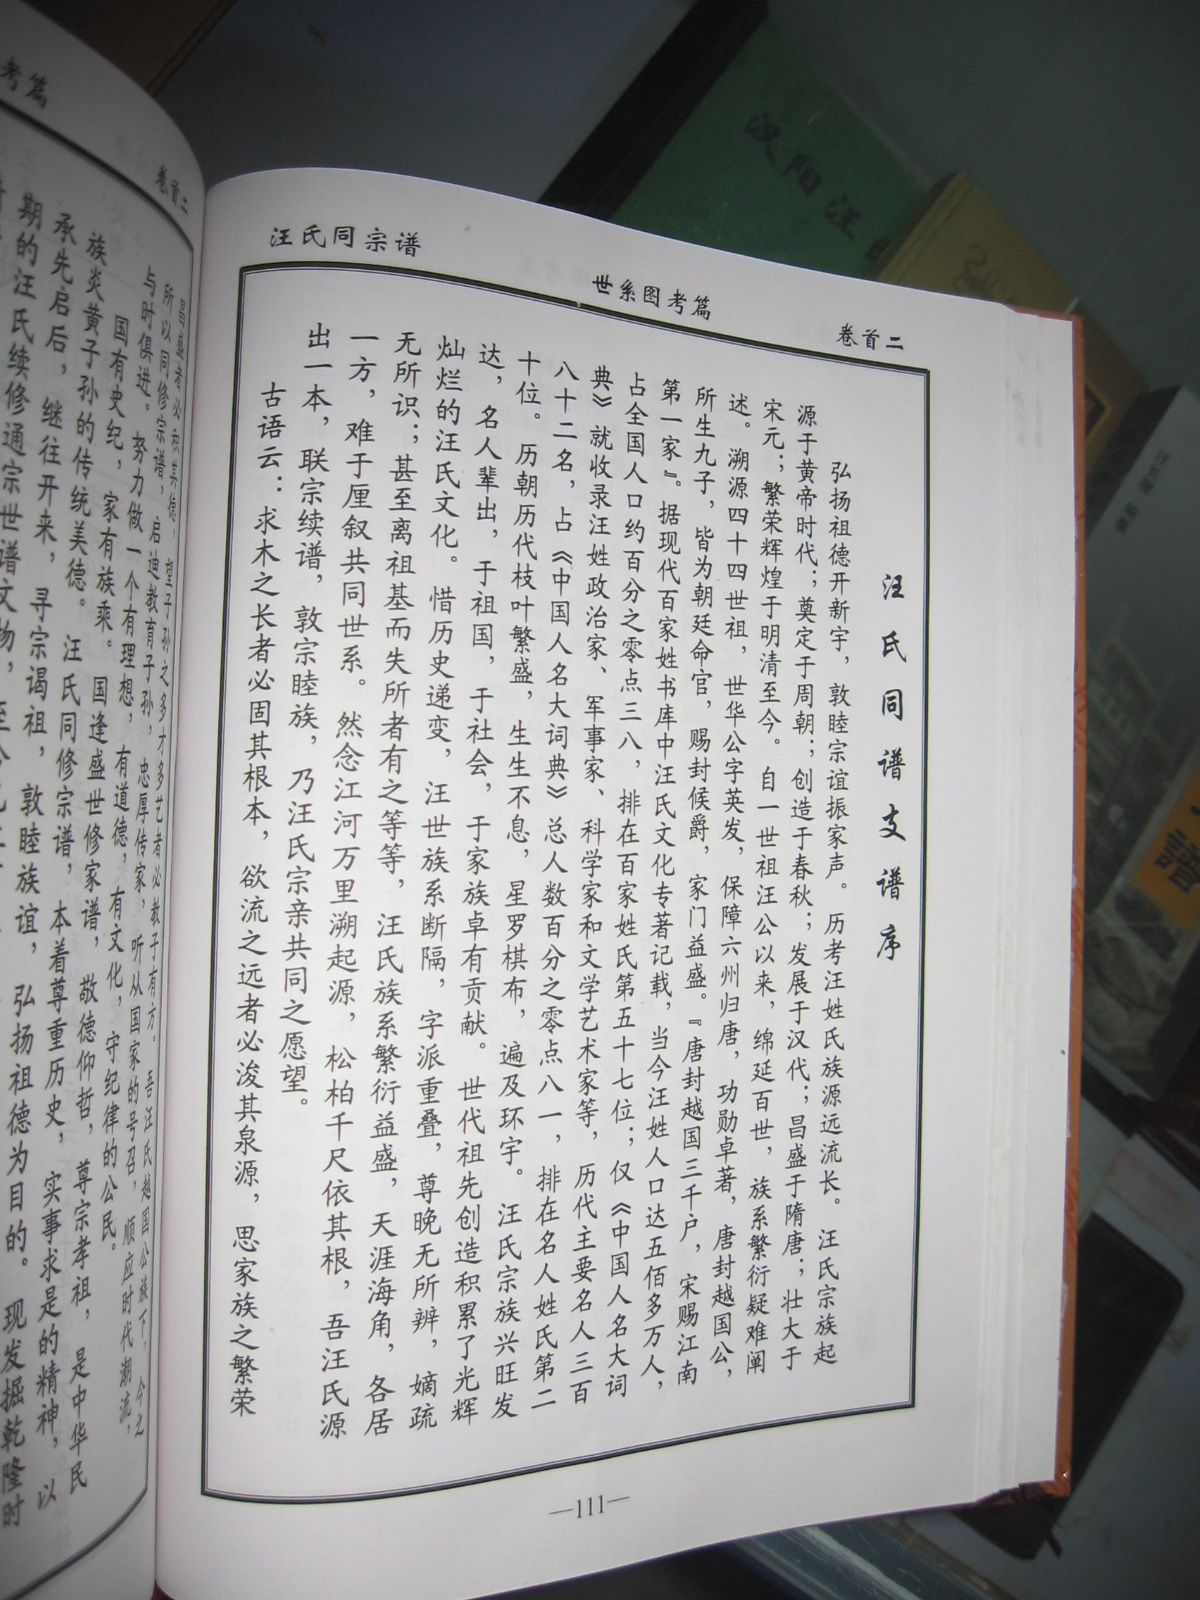 汪氏同宗谱
世系图考篇
卷首二
汪氏同谱支谱序
弘扬祖德开新宇，敦睦宗谊振家声。历考汪姓氏族源远流长。汪氏宗族起
源于黄帝时代；奠定于周朝；创造于春秋；发展于汉代；昌盛于隋唐；壮大于
宋元；繁荣辉煌于明清至今。自一世祖汪公以来，绵延百世，族系繁衍疑难阐
述。溯源四十四世祖，世华公字英发，保障六州归唐，功勋卓著，唐封越国公，
所生九子，皆为朝廷命官，赐封候爵，家门益盛。『唐封越国三千户，宋赐江南
第一家』。据现代百家姓书库中汪氏文化专著记载，当今汪姓人口达五佰多万人，
占全国人口约百分之零点三八，排在百家姓氏第五十七位；仅《中国人名大词
典》就收录汪姓政治家、军事家、科学家和文学艺术家等，历代主要名人三百
八十二名，占《中国人名大词典》总人数百分之零点八一，排在名人姓氏第二
十位。历朝历代枝叶繁盛，生生不息，星罗棋布，遍及环宇。汪氏宗族兴旺发
达，名人辈出，于祖国，于社会，于家族卓有贡献。世代祖先创造积累了光辉
灿烂的汪氏文化。惜历史递变，汪世族系断隔，字派重叠，尊晚无所辨，嫡疏
无所识；甚至离祖基而失所者有之等等，汪氏族系繁衍益盛，天涯海角，各居
一方，难于厘叙共同世系。然念江河万里溯起源，松柏千尺依其根，吾汪氏源
出一本，联宗续谱，敦宗睦族，乃汪氏宗亲共同之愿望。
古语云：求木之长者必固其根本，欲流之远者必浚其泉源，思家族之繁荣
—111—
考篇
卷首二
昌盛者必积其德，望子孙之多才多艺者必教子有方。吾汪氏越国公族下，今之
所以同修宗谱，启迪教育子孙，忠厚传家，听从国家的号召，顺应时代潮流，
与时俱进。努力做一个有理想，有道德，有文化，守纪律的公民。
国有史纪，家有族乘。国逢盛世修家谱，敬德仰哲，尊宗孝祖，是中华民
族炎黄子孙的传统美德。汪氏同修宗谱，本着尊重历史，实事求是的精神，以
承先启后，继往开来，寻宗谒祖，敦睦族谊，弘扬祖德为目的。现发掘乾隆时
期的汪氏续修通宗世谱文物，
汉阳汪
譜